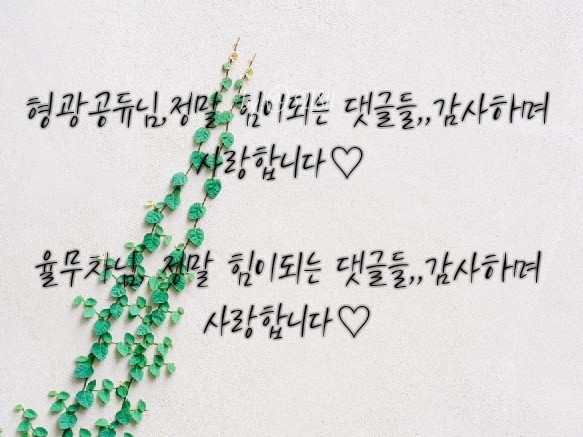 형광공듀님,정말 힘이되는 댓글들,,감사하며
사랑합니다♡
율무차님, 정말 힘이되는 댓글들,,감사하며
사랑합니다♡